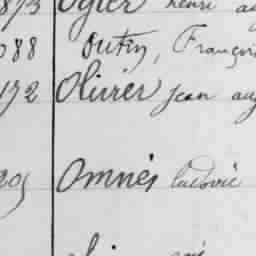 1873 Ogier henri au
088 Outin, Françoi
172 Olivier jean aug
205 Omnès ludovic